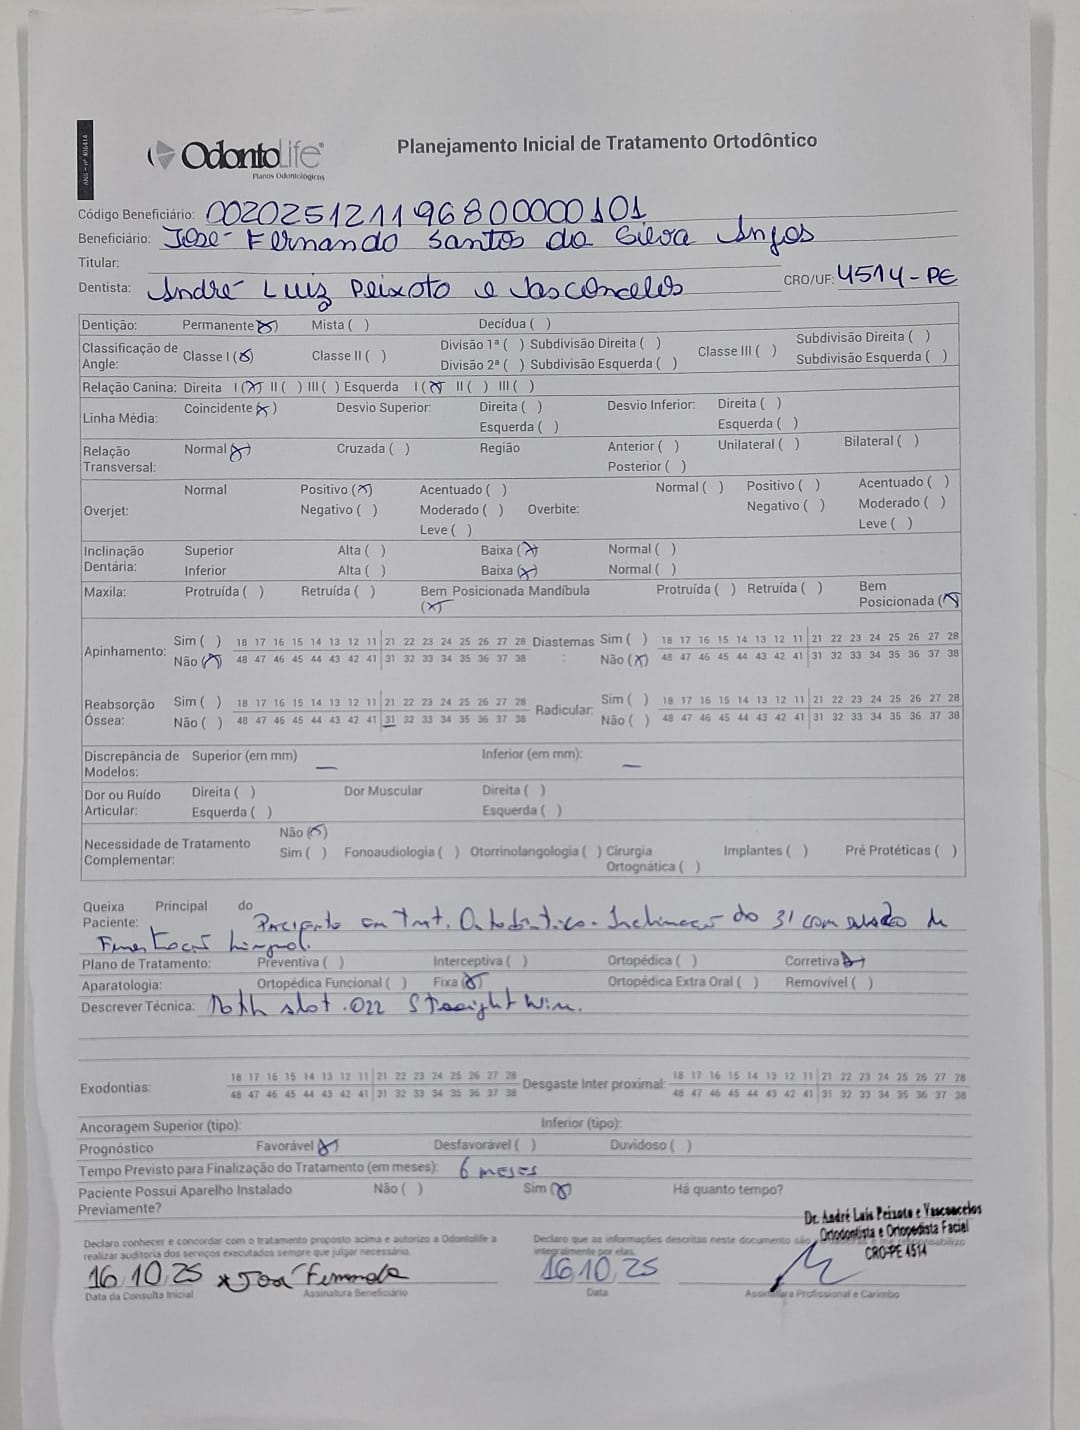 ANS - nº 406414
OdontoLife®
Planos Odontológicos
Planejamento Inicial de Tratamento Ortodôntico
Código Beneficiário: 00202512119680000101
Beneficiário: José Fernando Santos da Silva Anjos
Titular:
Dentista: André Luiz Peixoto e Vasconcelos CRO/UF: 4514-PE
Dentição: Permanente (X) Mista ( ) Decídua ( )
Classificação de Angle: Classe I (X) Classe II ( ) Divisão 1ª ( ) Subdivisão Direita ( ) Classe III ( ) Subdivisão Direita ( )
Divisão 2ª ( ) Subdivisão Esquerda ( ) Subdivisão Esquerda ( )
Relação Canina: Direita I (X) II ( ) III ( ) Esquerda I (X) II ( ) III ( )
Linha Média: Coincidente (X) Desvio Superior: Direita ( ) Desvio Inferior: Direita ( )
Esquerda ( ) Esquerda ( )
Relação Transversal: Normal (X) Cruzada ( ) Região Anterior ( ) Unilateral ( ) Bilateral ( )
Posterior ( )
Overjet: Normal Positivo (X) Acentuado ( ) Overbite: Normal ( ) Positivo ( ) Acentuado ( )
Negativo ( ) Moderado ( ) Negativo ( ) Moderado ( )
Leve ( ) Leve ( )
Inclinação Dentária: Superior Alta ( ) Baixa (X) Normal ( )
Inferior Alta ( ) Baixa (X) Normal ( )
Maxila: Protruída ( ) Retruída ( ) Bem Posicionada (X) Mandíbula Protruída ( ) Retruída ( ) Bem Posicionada (X)
Apinhamento: Sim ( ) 18 17 16 15 14 13 12 11 21 22 23 24 25 26 27 28 Diastemas : Sim ( ) 18 17 16 15 14 13 12 11 21 22 23 24 25 26 27 28
Não (X) 48 47 46 45 44 43 42 41 31 32 33 34 35 36 37 38 Não (X) 48 47 46 45 44 43 42 41 31 32 33 34 35 36 37 38
Reabsorção Óssea: Sim ( ) 18 17 16 15 14 13 12 11 21 22 23 24 25 26 27 28 Radicular: Sim ( ) 18 17 16 15 14 13 12 11 21 22 23 24 25 26 27 28
Não ( ) 48 47 46 45 44 43 42 41 31 32 33 34 35 36 37 38 Não ( ) 48 47 46 45 44 43 42 41 31 32 33 34 35 36 37 38
Discrepância de Modelos: Superior (em mm) — Inferior (em mm): —
Dor ou Ruído Articular: Direita ( ) Dor Muscular Direita ( )
Esquerda ( ) Esquerda ( )
Necessidade de Tratamento Complementar: Não (X)
Sim ( ) Fonoaudiologia ( ) Otorrinolangologia ( ) Cirurgia Ortognática ( ) Implantes ( ) Pré Protéticas ( )
Queixa Principal do Paciente: Paciente em Tmt. Ortodôntico - Inclinação do 31 com
Fenestração lingual.
Plano de Tratamento: Preventiva ( ) Interceptiva ( ) Ortopédica ( ) Corretiva (X)
Aparatologia: Ortopédica Funcional ( ) Fixa (X) Ortopédica Extra Oral ( ) Removível ( )
Descrever Técnica: Roth slot .022 Straight Wire.
Exodontias: 18 17 16 15 14 13 12 11 21 22 23 24 25 26 27 28 Desgaste Inter proximal: 18 17 16 15 14 13 12 11 21 22 23 24 25 26 27 28
48 47 46 45 44 43 42 41 31 32 33 34 35 36 37 38 48 47 46 45 44 43 42 41 31 32 33 34 35 36 37 38
Ancoragem Superior (tipo): Inferior (tipo):
Prognóstico Favorável (X) Desfavorável ( ) Duvidoso ( )
Tempo Previsto para Finalização do Tratamento (em meses): 6 meses
Paciente Possui Aparelho Instalado Previamente? Não ( ) Sim (X) Há quanto tempo?
Dr. André Luís Peixoto e Vasconcelos
Ortodontista e Ortopedista Facial
CRO-PE 4514
Declaro conhecer e concordar com o tratamento proposto acima e autorizo a Odontolife a
realizar auditoria dos serviços executados sempre que julgar necessário.
Declaro que as informações descritas neste documento são
integralmente por elas.
16.10.25 x José Fernando 16.10.25
Data da Consulta Inicial Assinatura Beneficiário Data Assinatura Profissional e Carimbo